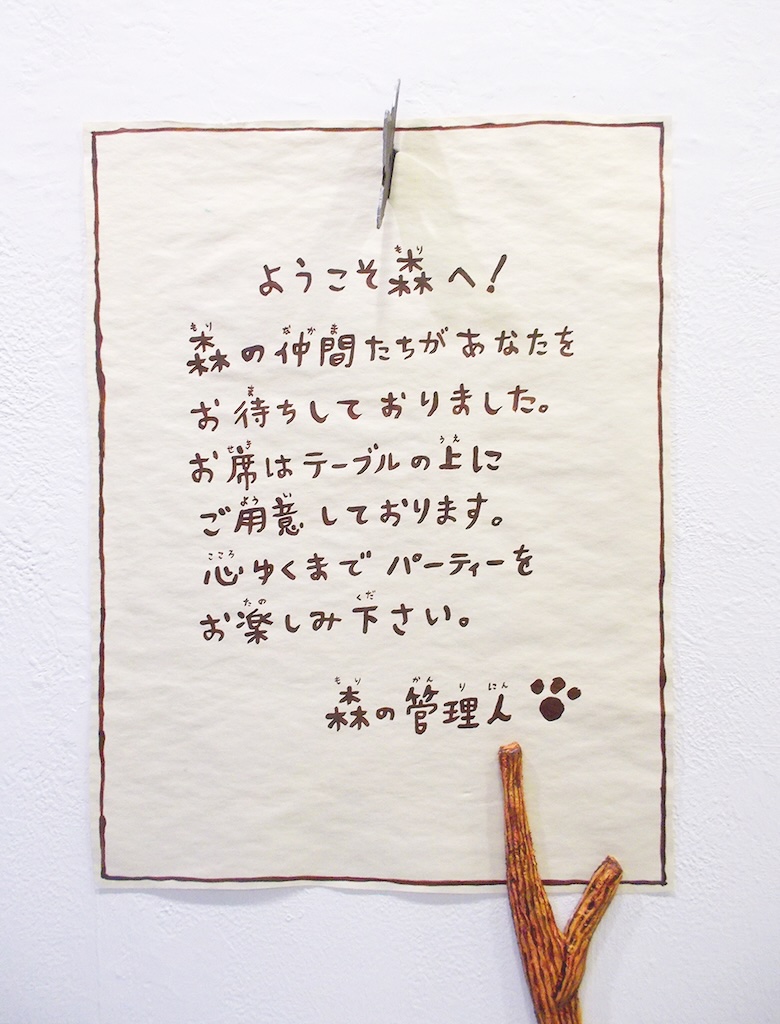 ようこそ森へ!
森の仲間たちがあなたを
お待ちしておりました。
お席はテーブルの上に
ご用意しております。
心ゆくまでパーティーを
お楽しみ下さい。
森の管理人